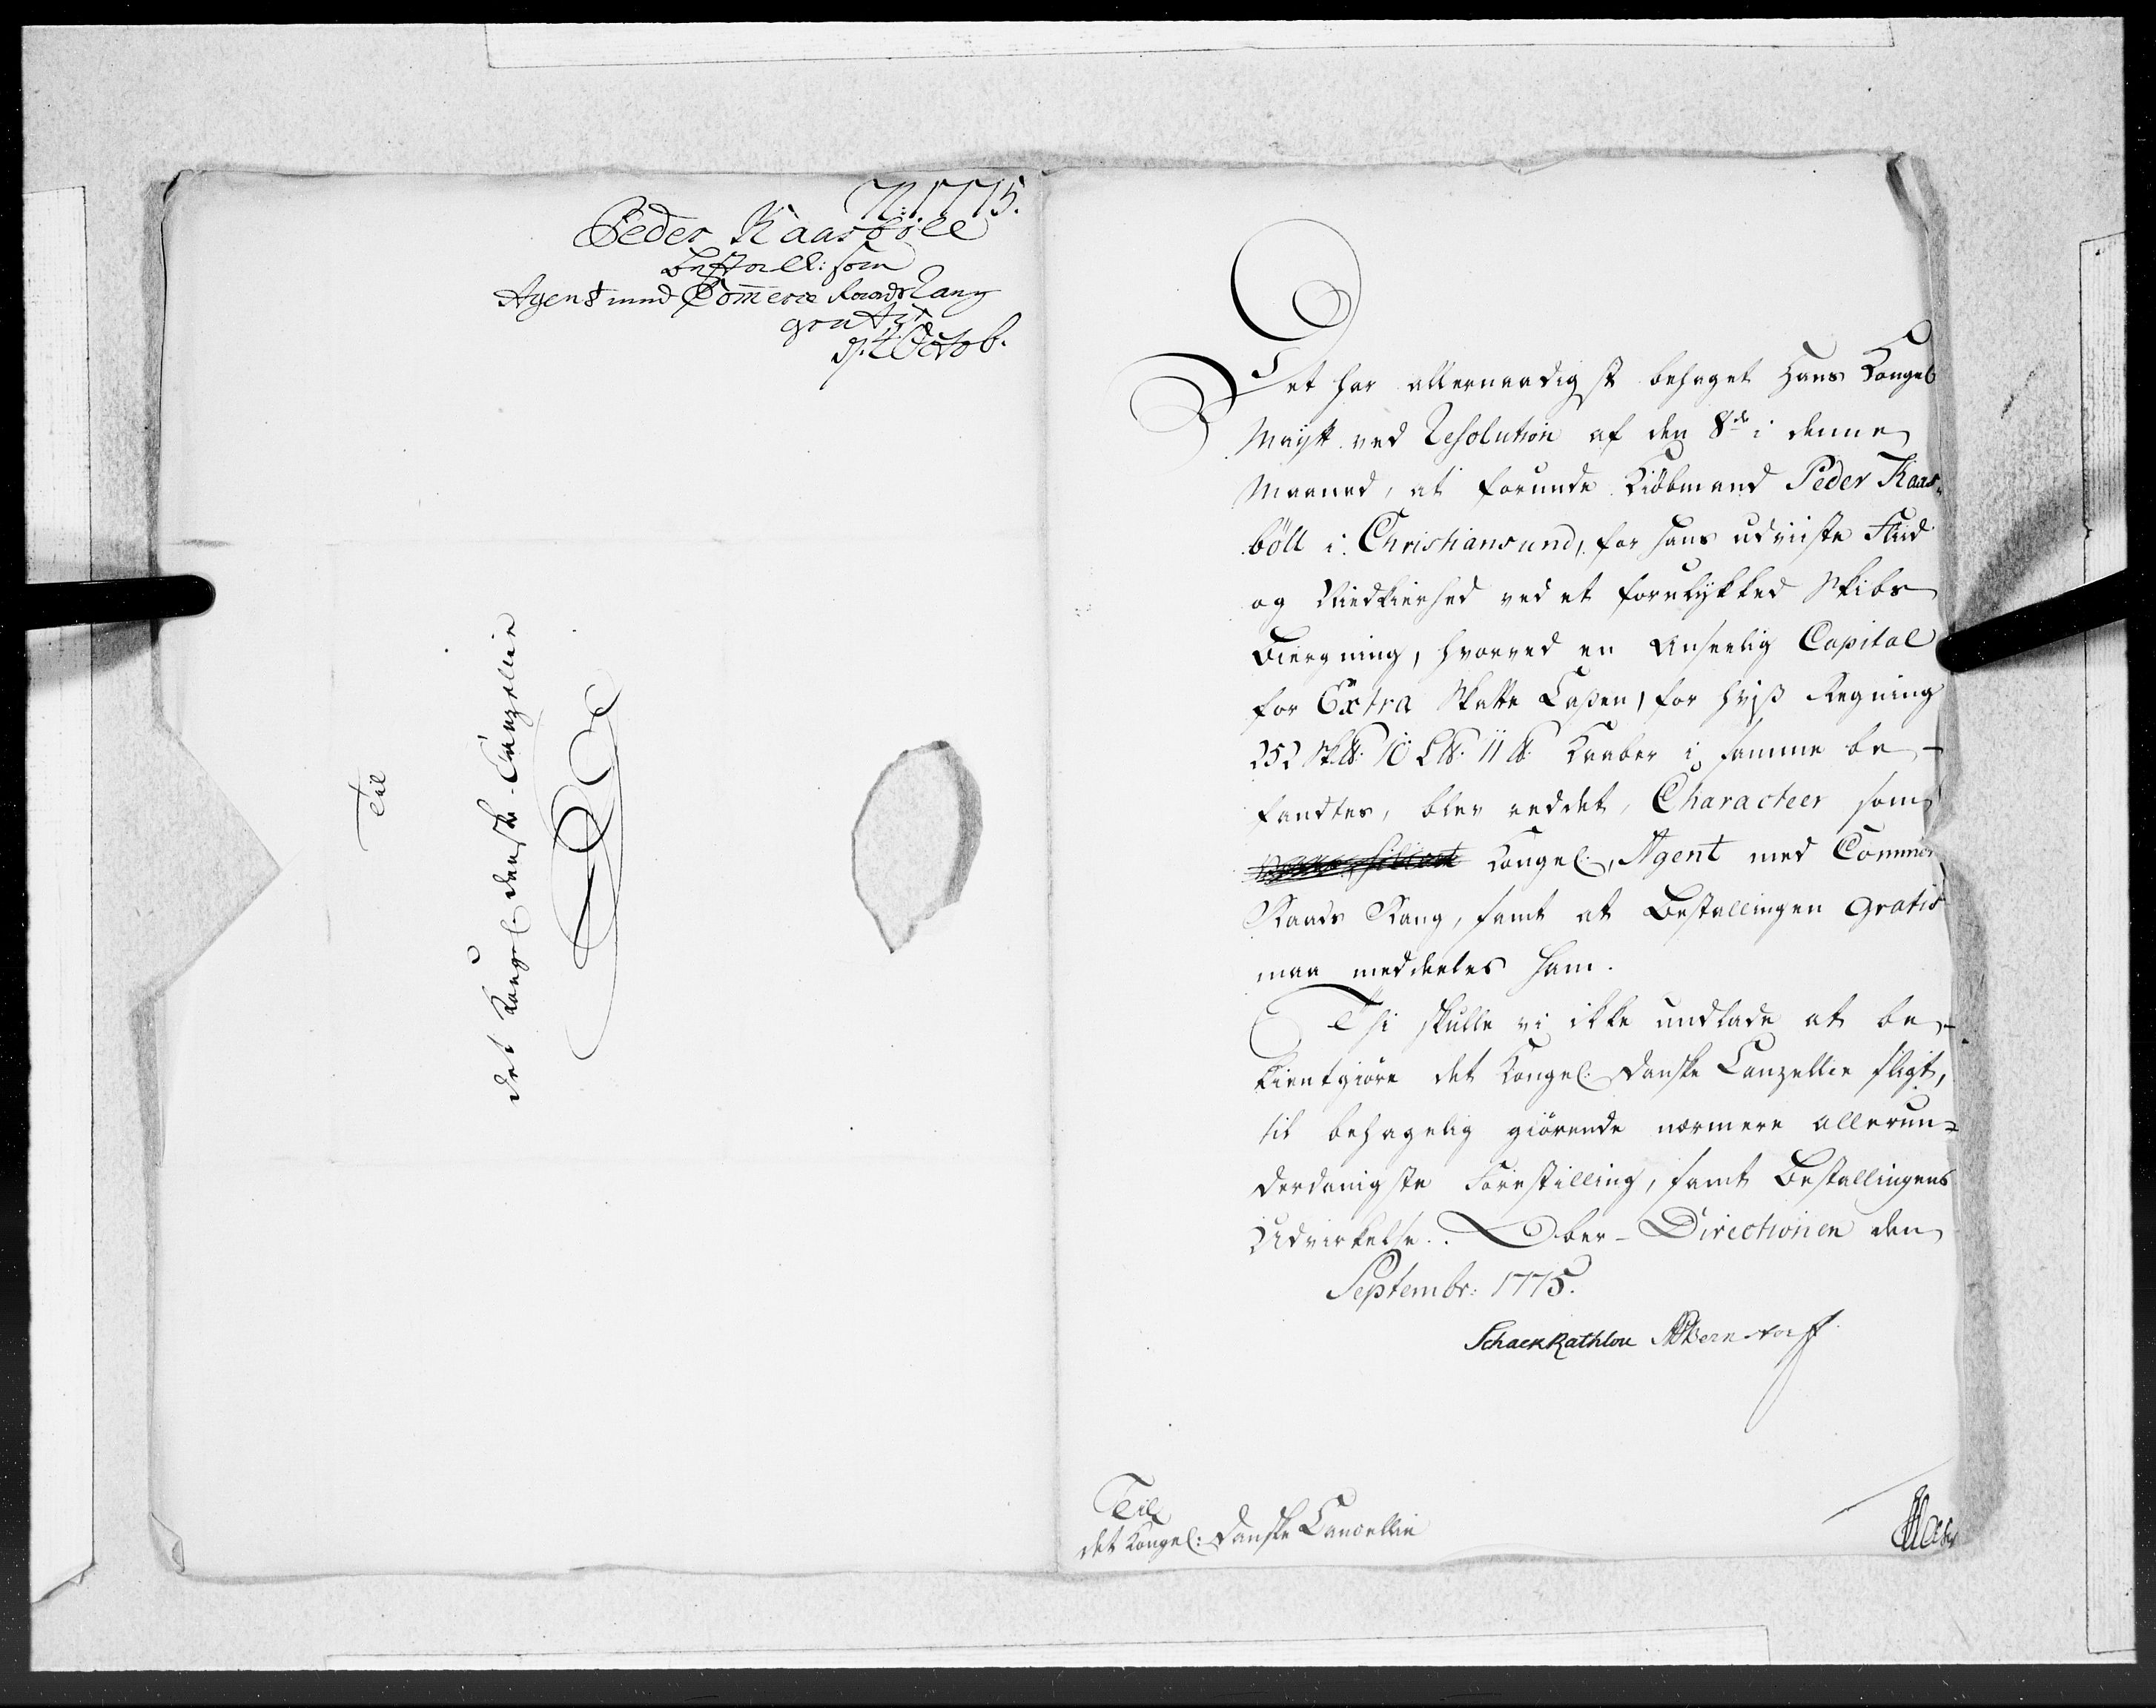 N: 1775.
Peder Kaasböll
bestall: som
Agent med Com̅erce Raads Rang
gratis
d. 12 Octob.
Til
det Kongel. danske Canzellie
Det har allernaadigst behaget Hans Kongel
Mayst. ved Resolution af den 8de i denne
Maaned, at forunde Kiöbmand Peder Kaas-
böll i Christiansund, for hans udviiste Fliid
og Nidkierhed ved et forulykked Skibs
Biergning, hvorved en Anseelig Capital
for Extra Skatte Cassen, for hvis Regning
252 Sk℔. 10 L℔. 11 ℔. Kaaber i samme be-
fandtes, blev reddet, Characteer som
Kongel. Agent med Commer
Raads Rang, samt at Bestallingen gratis
maa meddeeles ham.
Thi skulle vi ikke undlade at be-
kientgiöre det Kongel. Danske Canzellie sligt,
til behagelig giörende nærmere allerun-
derdanigste Forestilling, samt Bestallingens
Udvirkelse. Ober-Directionen den
Septembr: 1775.
Schack Rathlou AP Bernstorff
Til
det Kongel: Danske Cancellie